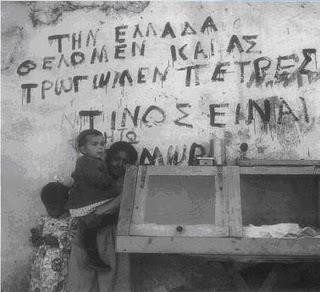 ΤΗΝ ΕΛΛΑΔΑ
ΘΕΛΟΜΕΝ ΚΑΙ ΑΣ
ΤΡΩΓΩΜΕΝ ΠΕΤΡΕΣ
ΤΙΝΟΣ ΕΙΝΑΙ